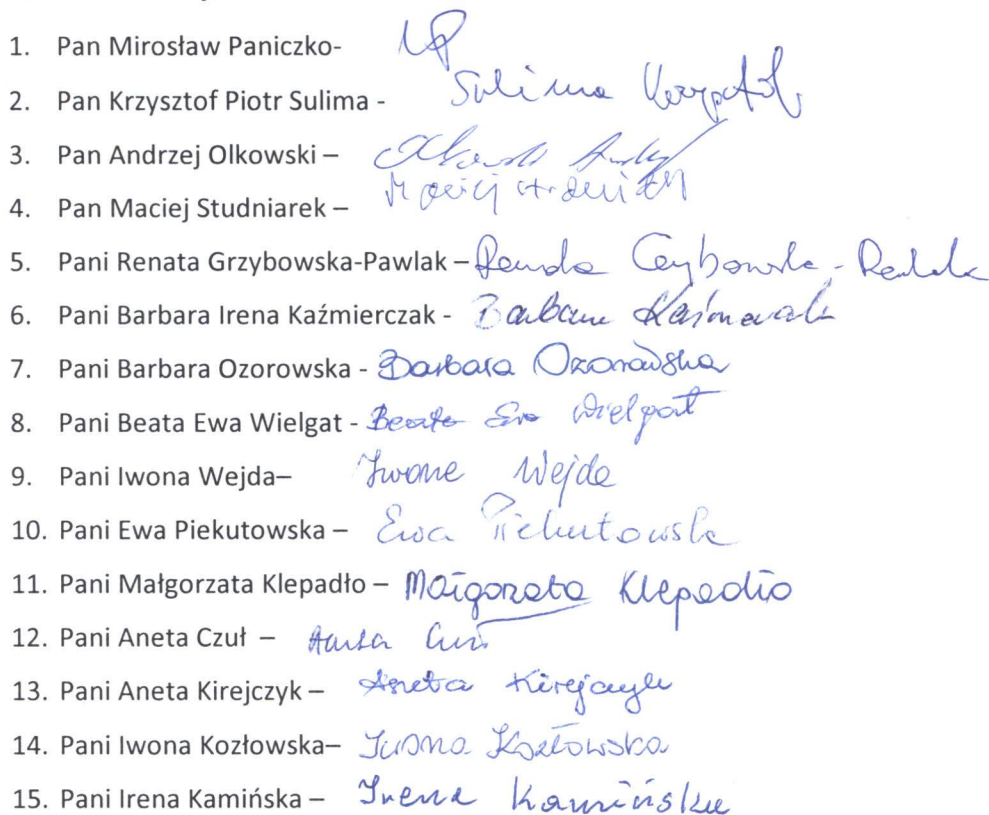 1. Pan Mirosław Paniczko- MP
2. Pan Krzysztof Piotr Sulima - Sulima Krzysztof
3. Pan Andrzej Olkowski –
4. Pan Maciej Studniarek – Maciej
5. Pani Renata Grzybowska-Pawlak – Renata Grzybowska-Pawlak
6. Pani Barbara Irena Kaźmierczak - Barbara Kaźmierczak
7. Pani Barbara Ozorowska - Barbara Ozorowska
8. Pani Beata Ewa Wielgat - Beata Ewa Wielgat
9. Pani Iwona Wejda– Iwona Wejda
10. Pani Ewa Piekutowska – Ewa Piekutowska
11. Pani Małgorzata Klepadło – Małgorzata Klepadło
12. Pani Aneta Czuł – Aneta Czuł
13. Pani Aneta Kirejczyk – Aneta Kirejczyk
14. Pani Iwona Kozłowska– Iwona Kozłowska
15. Pani Irena Kamińska – Irena Kamińska